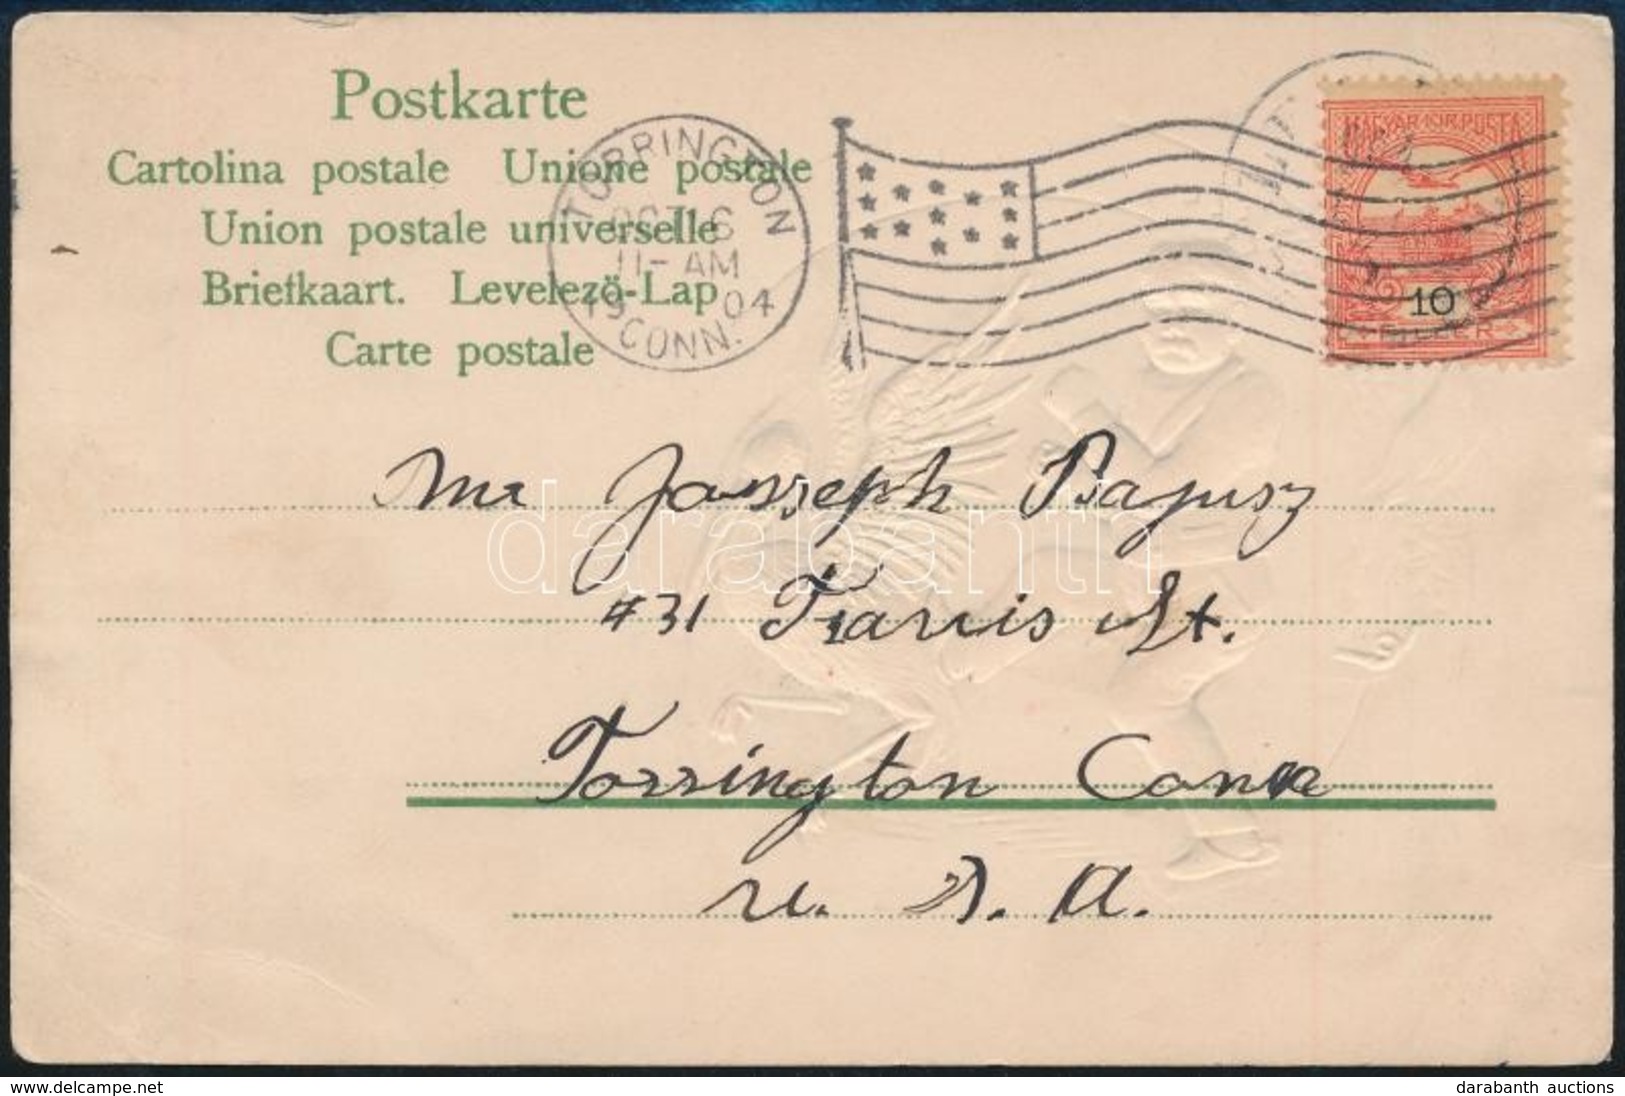 Postkarte
Cartolina postale Unione postale
Union postale universelle
Briefkaart. Levelező-Lap
Carte postale
TORRINGTON
OCT 6
11-AM
1904
CONN.
MAGYAR·KIR·POSTA
10
FILLER
Mr Jasszeph Bajusz
#31 Travis St.
Torrington Conn
U. S. A.
darabanth
www.delcampe.net
darabanth auctions